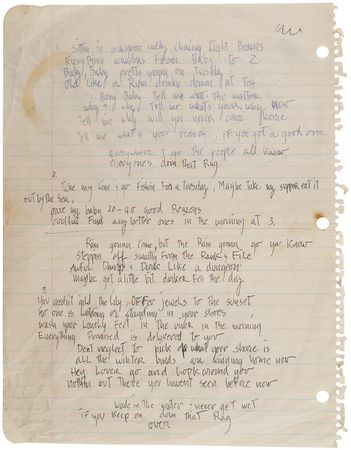 1. Sittin in mangrove valley chasing light Beames
Everything wanders From Baby to Z
Baby, Baby pretty young on Tuesday
Old like a Rum drinkin demon at Tea
Baby Baby Tell me what the matter
why - why, Tell me what's your why now
Tell me why will you never come home
Tell me what's your reason, if you got a good one
Everywhere I go the people all know
everyones doin that Rag
2.
Take my line & go Fishing For a Tuesday, Maybe Take my supper eat it
out by the sea,
gave my baby 20-40 good Reasons
Couldnt Find any better ones in the morning at 3.
Rain gonna come, but the Rain gonna go ya Know
Steppin off smartly From the Rank & File
Awful Dark & Dank Like a dungeon
Maybe get a little bit darker For the day
3.
You needn't gild the lily, OFFer jewels to the sunset
no one is Looking or standing in your shoes
wash your Lonely Feet, in the river in the morning
Everything Promised is delivered to you
Dont neglect to pick up what your share is
all the winter birds are winging home now
Hey Lover go and look around you
nothin out there you havent seen before now
wade in the water - never get wet
if you keep on doin that Rag
over